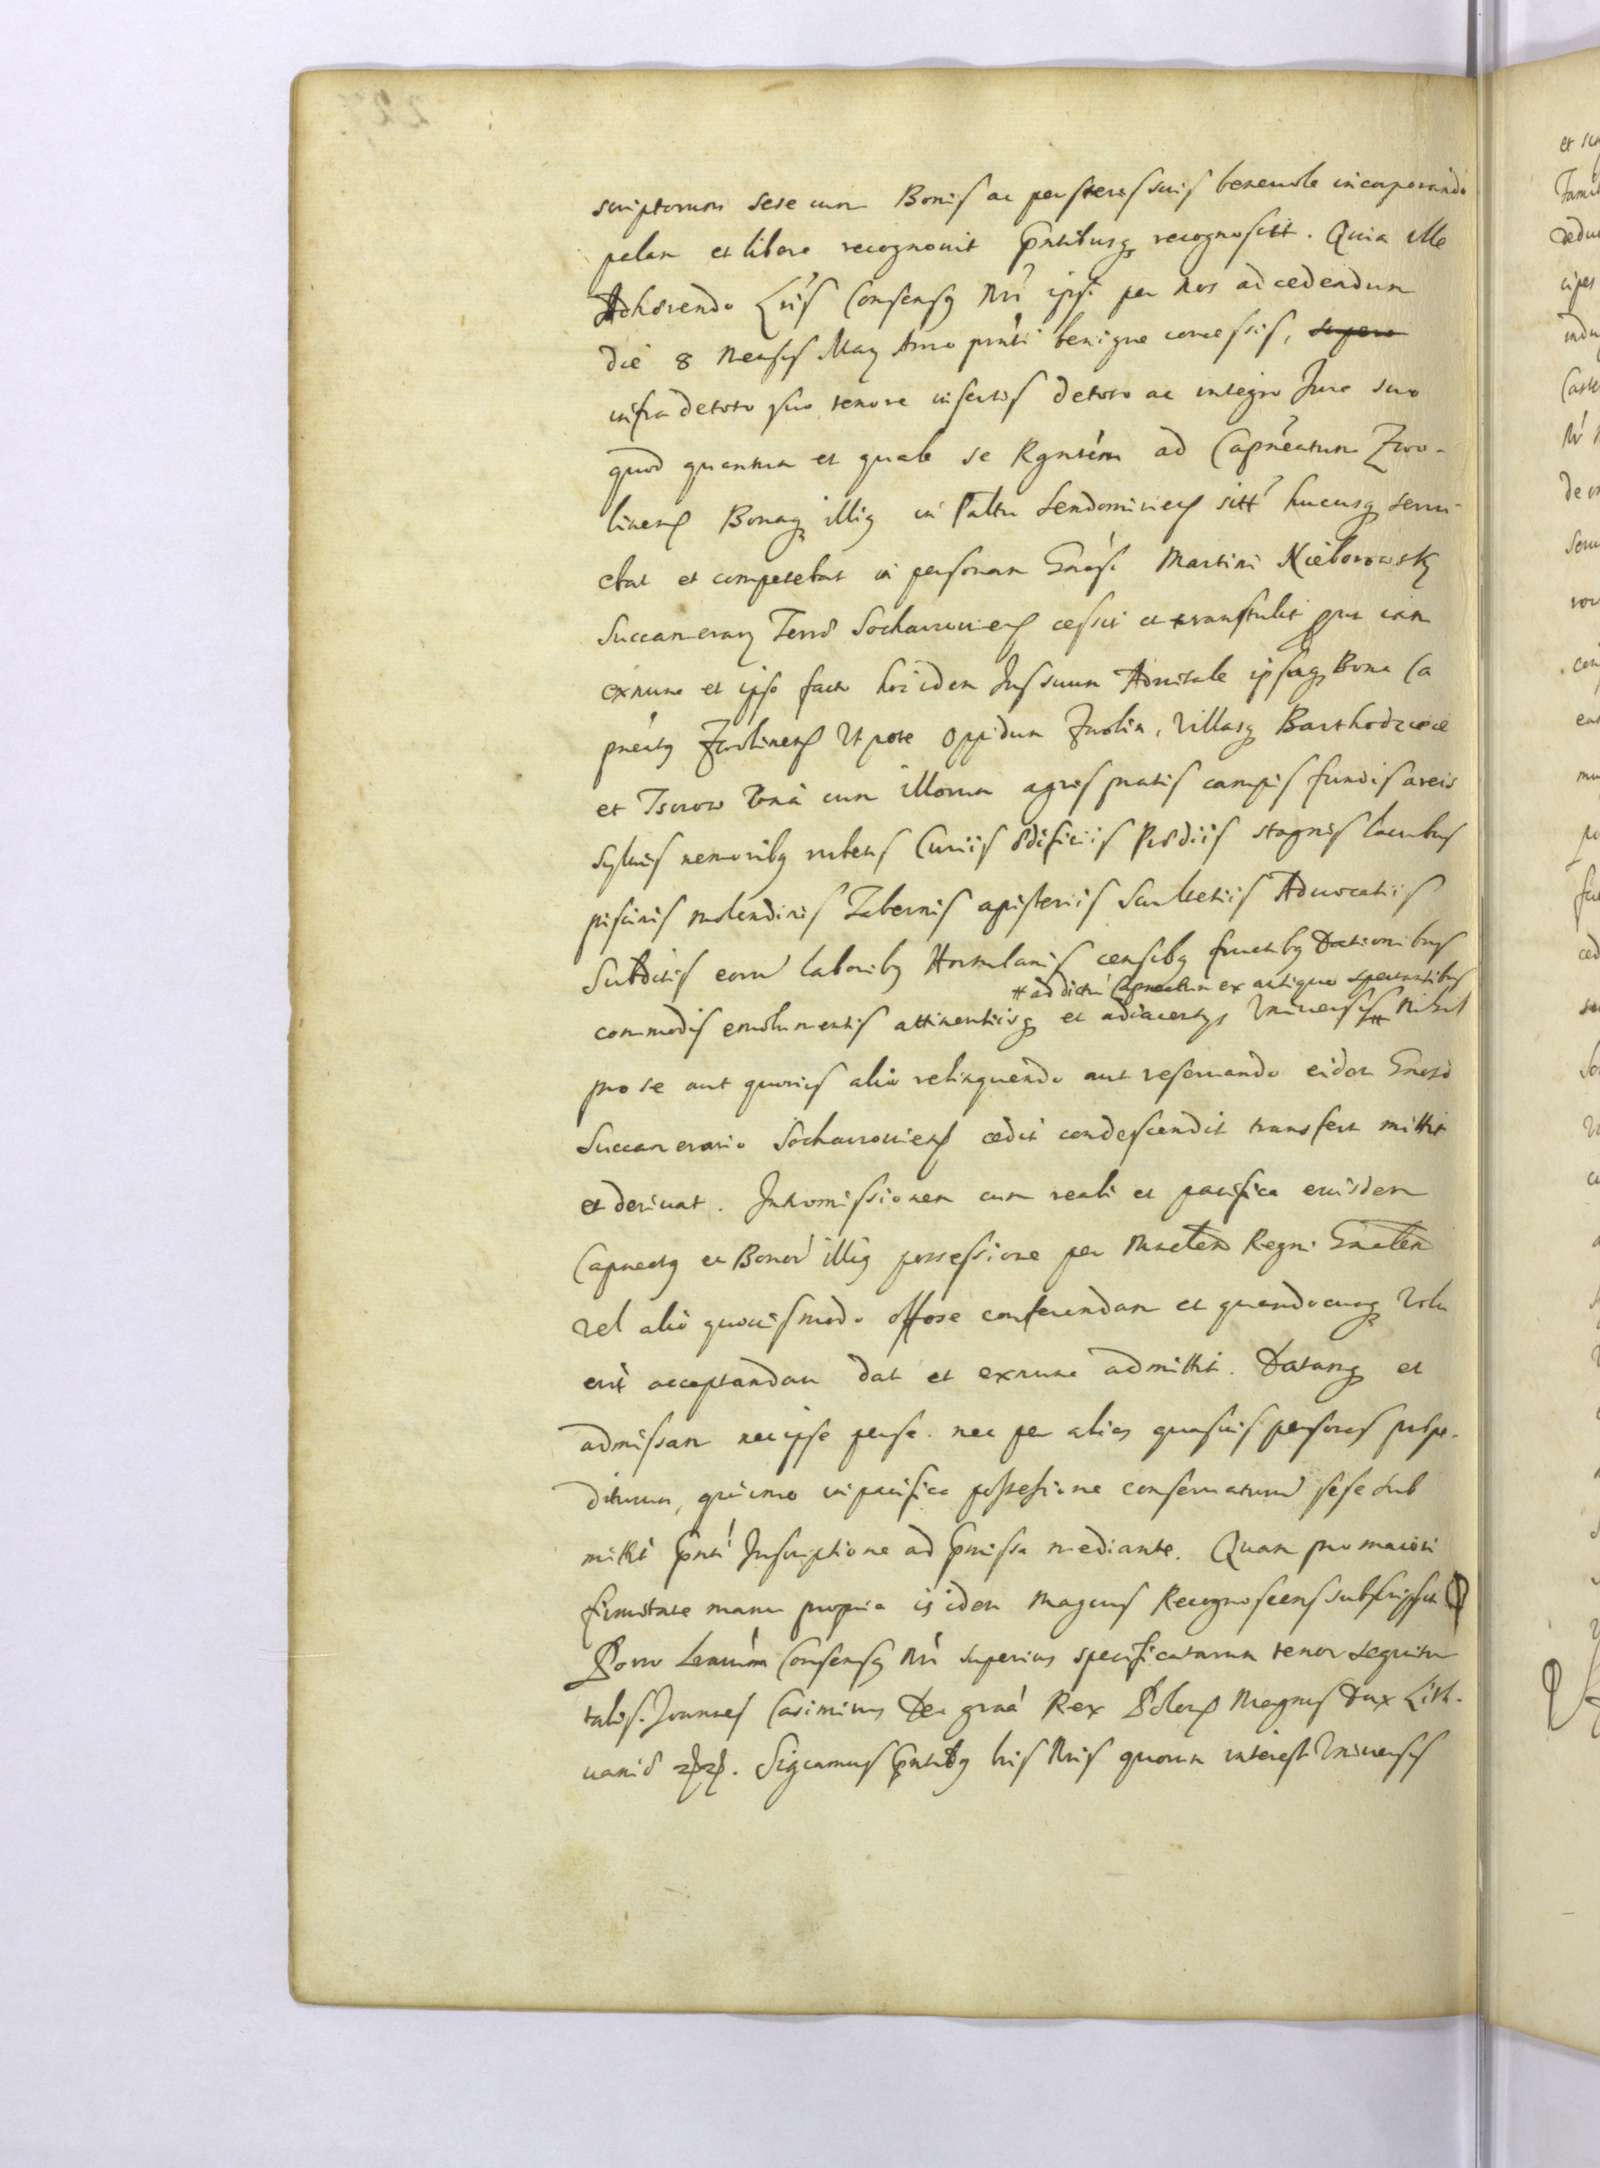 scriptorum sese cum Bonis ac posteris suis benevole incorporando
palam et libere recognovit Pntibusq recognoscit. Quia ille
Adhærendo Lris Consensq Nri ipsi per nos ad cedendum
die 8 Mensis May Anno pnti benigne concessis, supero
infra de toto suo tenore insertis de toto ac integro Jure suo
quod quantum et quale se Rgntem ad Capneatum Zwo-
linens Bonaq illiq in Pałtu Sendomiriens sitt hucusq servi-
ebat et competebat in personam Gnosi Martini Nieborowsky
Succamerary Terræ Sochaczoviens cessit et transtulit prout iam
exnunc et ipso facto hoc idem Jus suum Advitale ipsaq Bona Ca
pneatq Zwolinens Ut pote Oppidum Zwolin, Villasq Barthodzieie
et Tczow Vna cum illorum agris pratis campis fundis areis
Sylvis nemoribq rubetis Curiis ædificiis Prædiis stagnis lacubus
piscinis molendinis Tabernis apisteriis Scultetiis Advocatiis
Subditis eorum laboribq Hortulanis censibq fructibq Dationibus
# ad dictu Capneatum ex antiquo spectantibus
commodis emolumentis attinentiisq et adiacentys Universis # Nihil
pro se aut quovis alio relinquendo aut reservando eidem Gnoso
Succamerario Sochaczoviens cedit condescendit transfert mittit
et derivat. Intromissionem cum reali et pacifica eiusdem
Capneatq et Bonor illiq possessione per Mnrlem Regni Gnalem
vel alio quovismodo offose conferendam et quandocunq Volu
erit acceptandam dat et exnunc admittit. Datamq et
admissam nec ipse per se nec per alias quasvis personas præpe-
diturum, quinimo in pacifica possessione conservaturum sese sub
mittit Pnti Inscriptione ad Pmissa mediante. Quam pro maiori
firmitate manu propria is idem Magcus Recognoscens subscripsit
Porro Lrarum Consensq Nri superius specificatarum tenor sequitur
talis. Joannes Casimirus Dei graa Rex Polons Magnus Dux Lith-
uaniæ etc. Significamus Pntibq his Nris quorum interest Universis